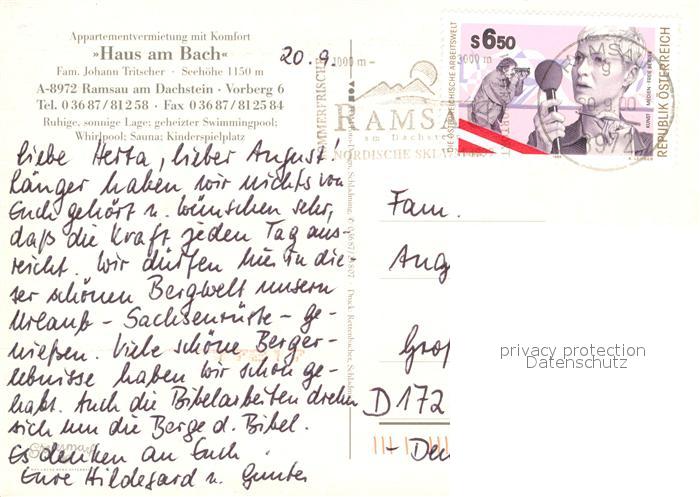 Appartementvermietung mit Komfort
»Haus am Bach«
Fam. Johann Tritscher · Seehöhe 1150 m
A-8972 Ramsau am Dachstein · Vorberg 6
Tel. 0 36 87 / 8 12 58 · Fax 0 36 87 / 81 25 84
Ruhige, sonnige Lage; geheizter Swimmingpool;
Whirlpool; Sauna; Kinderspielplatz
20.9.
Liebe Herta, lieber August!
Länger haben wir nichts von
Euch gehört u. wünschen sehr,
daß die Kraft jeden Tag aus-
reicht. Wir dürfen hier in die-
ser schönen Bergwelt unsern
Urlaub - Sachsenrüste - ge-
nießen. Viele schöne Berger-
lebnisse haben wir schon ge-
habt. Auch die Bibelarbeiten drehn
sich um die Berge d. Bibel.
Es denken an Euch
Eure Hildegard u. Gunter
SOMMERFRISCHE
1000 m -
3000 m
RAMSAU
am Dachstein
NORDISCHE
Druck Rettenbacher, Schladming
S 6,50
DIE ÖSTERREICHISCHE ARBEITSWELT
KUNST MEDIEN FREIE BERUFE
REPUBLIK ÖSTERREICH
RAMSAU
8972
Fam.
Aug
Groß
D 172
- Deu
privacy protection
Datenschutz